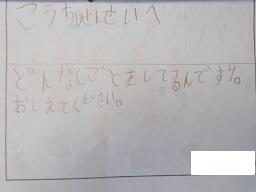 こうちょうせんせいへ
どんなしごとをしてるんですか。
おしえてください。